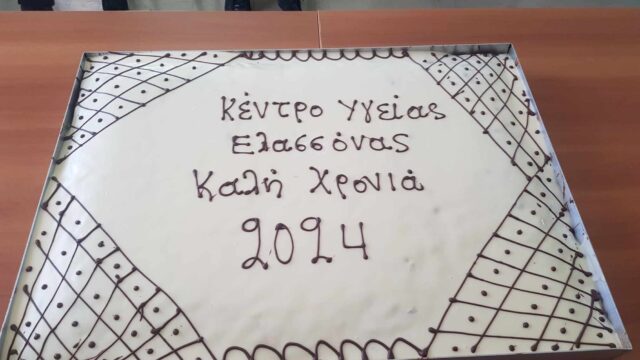 Κέντρο Υγείας
Ελασσόνας
Καλή Χρονιά
2024